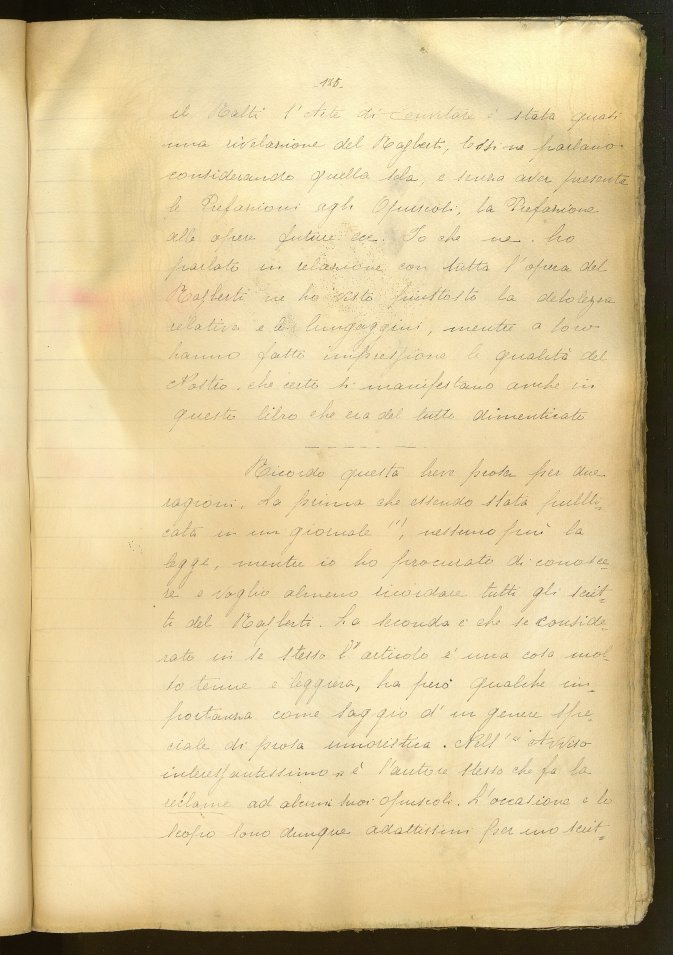 -125-
il Balti l'Arte di Convitare è stata quasi
una rivelazione del Rajberti, essi ne parlano
considerando quella sola, e senza aver presenti
le Prefazioni agli Opuscoli, la Prefazione
alle opere future ecc. Io che ne ho
parlato in relazione con tutta l'opera del
Rajberti ne ho visto piuttosto la debolezza
relativa e le lungaggini, mentre a loro
hanno fatto impressione le qualità del
Nostro, che certo si manifestano anche in
questo libro che era del tutto dimenticato
Ricordo questa breve prosa per due
ragioni. La prima che essendo stata pubbli-
cata in un giornale (1), nessuno più la
legge, mentre io ho procurato di conosce-
re e voglio almeno ricordare tutti gli scrit-
ti del Rajberti. La seconda è che se conside-
rato in se stesso l'articolo è una cosa mol-
to tenue e leggiera, ha però qualche im-
portanza come saggio d'un genere spe-
ciale di prosa umoristica. Nell'"Avviso
interessantissimo" è l'autore stesso che fa la
réclame ad alcuni suoi opuscoli. L'occasione e lo
scopo sono dunque adattissimi per uno scrit-